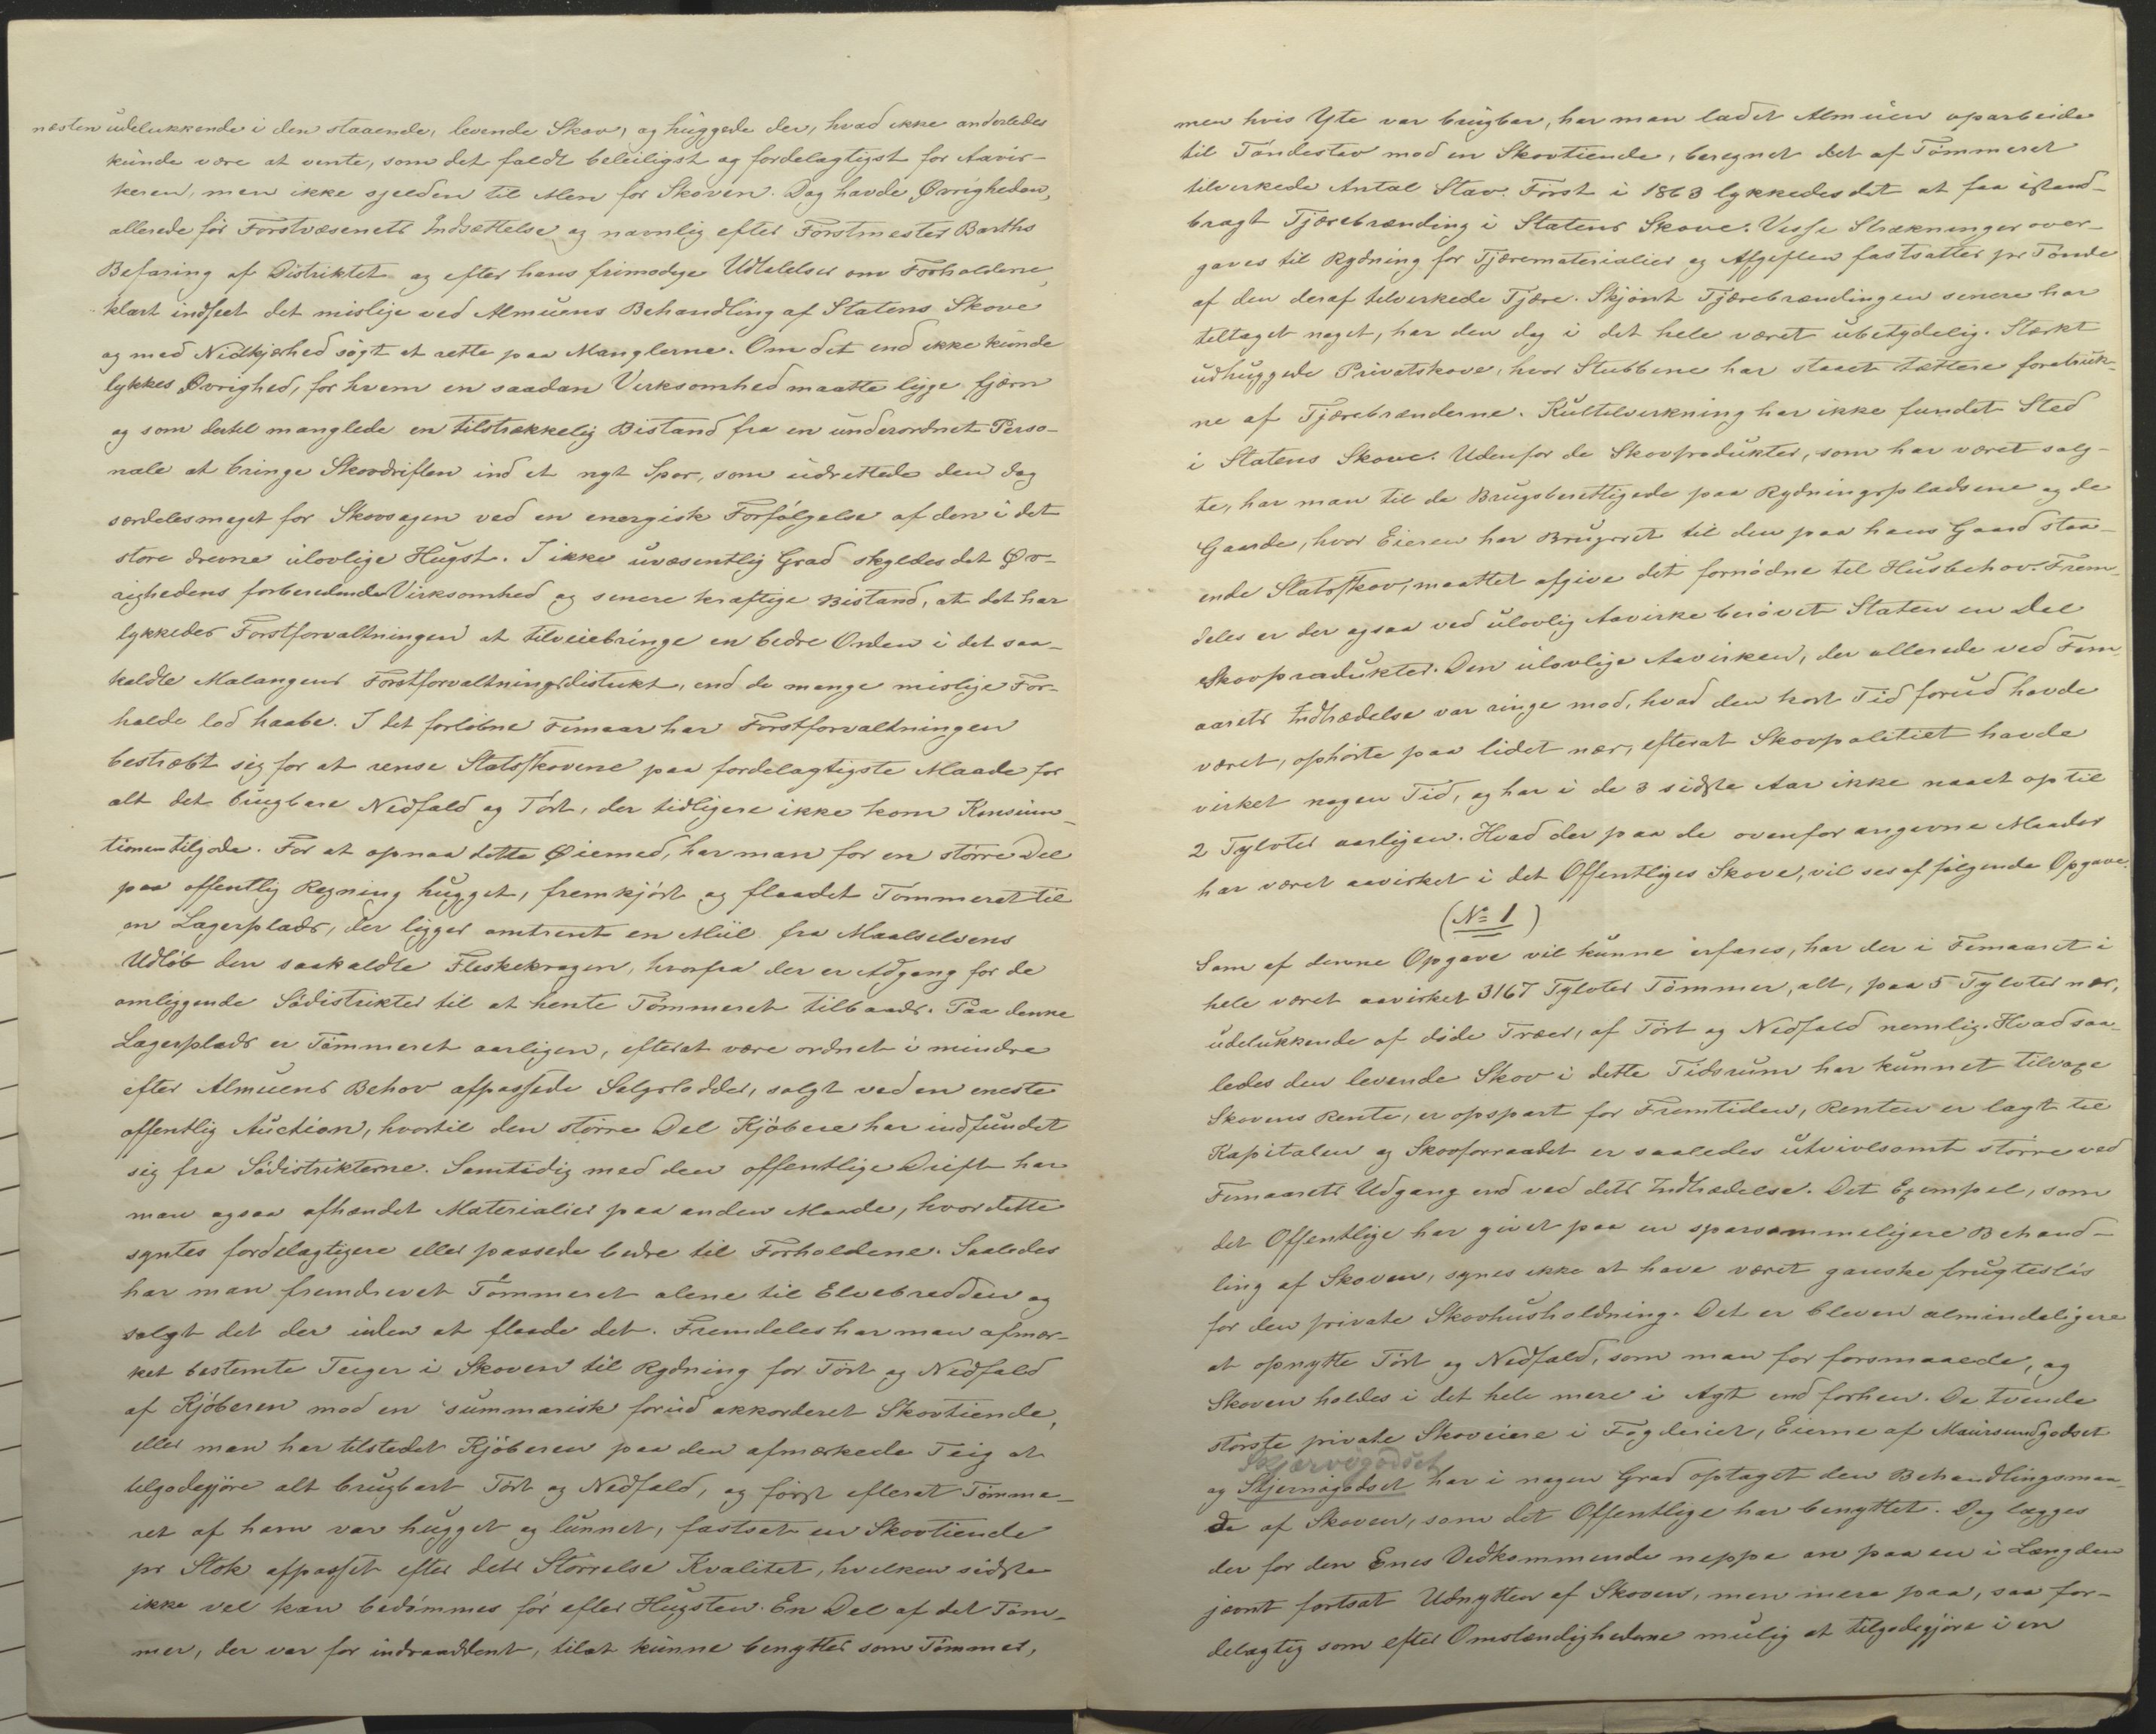 næsten udelukkende i den staaende, levende Skov, og huggede der, hvad ikke anderledes
kunde være at vente, som det faldt beleiligst og fordelagtigst for Aavir-
keren, men ikke sjelden til Men for Skoven. Dog havde Øvrigheden,
allerede før Forstvæsenets Indsættelse og navnlig efter Forstmester Barths
Befaring af Distriktet og efter hans frimodige Udtalelser om Forholdene,
klart indseet det mislige ved Almuens Behandling af Statens Skove
og med Nidkjærhed søgt at rette paa Manglerne. Om det end ikke kunde
lykkes Øvrighed, for hvem en saadan Virksomhed maatte ligge fjern
og som dertil manglede en tilstrækkelig Bistand fra en underordnet Perso-
nale at bringe Skovdriften ind et nyt Spor, som udrettede den dog
særdeles meget for Skovsagen ved en energisk Forfølgelse af den i det
store drevne ulovlige Hugst. I ikke uvæsentlig Grad skyldes det Øv-
righedens forberedende Virksomhed og senere kraftige Bistand, at det har
lykkedes Forstforvaltningen at tilveiebringe en bedre Orden i det saa-
kaldte Malangens Forstforvaltningsdistrikt, end de mange mislige For-
holde lod haabe. I det forløbne Femaar har Forstforvaltningen
bestræbt sig for at rense Statsskovene paa fordelagtigste Maade for
alt det brugbare Nedfald og Tørt, der tidligere ikke kom Konsum-
tionen tilgode. For at opnaa dette Øiemed, har man for en større Del
paa offentlig Regning hugget, fremkjørt og flaadet Tømmeret til
en Lagerplads, der ligger omtrent en Miil fra Maalselvens
Udløb den saakaldte Fleskekrogen, hvorfra der er Adgang for de
omliggende Sødistrikter til at hente Tømmeret tilbaads. Paa denne
Lagerplads er Tømmeret aarligen, efterat være ordnet i mindre
efter Almuens Behov afpassede Salgslodder, solgt ved en eneste
offentlig Auction, hvortil den større Del Kjøbere har indfundet
sig fra Sødistrikterne. Samtidig med den offentlige Drift har
man ogsaa afhændet Materialier paa anden Maade, hvor dette
syntes fordelagtigere eller passede bedre til Forholdene. Saaledes
har man fremdrevet Tømmeret alene til Elvebredden og
solgt det der uden at flaade det. Fremdeles har man afmær-
ket bestemte Teiger i Skoven til Rydning for Tørt og Nedfald
af Kjøberen mod en summarisk forud akkorderet Skovtiende,
eller man har tilstedet Kjøberen paa den afmærkede Teig at
tilgodegjøre alt brugbart Tørt og Nedfald, og først efterat Tømme-
ret af ham var hugget og lunnet, fastsat en Skovtiende
pr Stok afpasset efter dets Størrelse Kvalitet, hvilken sidste
ikke vel kan bedømmes før efter Hugsten. En Del af det Tøm-
mer, der var for indraaddent, tilat kunne benyttes som Tømmer,
men hvis Yte var brugbar, har man ladet Almuen oparbeide
til Tøndestav mod en Skovtiende, beregnet det af Tømmeret
tilvirkede Antal Stav. Først i 1863 lykkedes det at faa istand-
bragt Tjærebrænding i Statens Skove. Visse Strækninger over-
gaves til Rydning for Tjærematerialier og Afgiften fastsattes pr Tønde
af den deraf tilvirkede Tjære. Skjønt Tjærebrændingen senere har
tiltaget noget, har den dog i det hele været ubetydelig. Stærkt
udhuggede Privatskove, hvor Stubbene har staaet tættere foretruk-
ne af Tjærebrænderne. Kultilvirkning har ikke fundet Sted
i Statens Skove. Udenfor de Skovprodukter, som har været solg-
te, har man til de Brugsberettigede paa Rydningspladsene og de
Gaarde, hvor Eieren har Brugsret til den paa hans Gaard staa-
ende Statsskov, maattet afgive det fornødne til Husbehov. Frem-
deles er der ogsaa ved ulovlig Aavirke berøvet Staten en Del
Skovprodukter. Den ulovlige Aavirken, der allerede ved Fem-
aarets Indtrædelse var ringe mod, hvad den kort Tid forud havde
været, ophørte paa lidet nær, efterat Skovpolitiet havde
virket nogen Tid, og har i de 3 sidste Aar ikke naaet op til
2 Tylvter aarligen. Hvad der paa de ovenfor angivne Maader
har været aavirket i det Offentliges Skove, vil ses af følgende Opgave.
(No 1)
Som af denne Opgave vil kunne erfares, har der i Femaaret i
hele været aavirket 3167 Tylvter Tømmer, alt, paa 5 Tylvter nær,
udelukkende af døde Træer, af Tørt og Nedfald nemlig. Hvad saa-
ledes den levende Skov i dette Tidsrum har kunnet tilvoxe
Skovens Rente, er opspart for Fremtiden, Renten er lagt til
Kapitalen og Skovforraadet er saaledes utvivlsomt større ved
Femaarets Udgang end ved dets Indtrædelse. Det Exempel, som
det Offentlige har givet paa en sparsommeligere Behand-
ling af Skoven, synes ikke at have været ganske frugtesløs
for den private Skovhusholdning. Det er bleven almindeligere
at opnytte Tørt og Nedfald, som man før forsmaaede, og
Skoven holdes i det hele mere i Agt end forhen. De tvende
største private Skoveiere i Fogderiet, Eierne af Maursundgodset
Skjærvøgodset
og Skjernøgodset har i nogen Grad optaget den Behandlingsmaa-
de af Skoven, som det Offentlige har benyttet. Dog lægges
der for den Enes Vedkommende neppe an paa en i Længden
jævnt fortsat Udnytten af Skoven, men mere paa, saa for-
delagtig som efter Omstændighederne mulig at tilgodegjøre i en